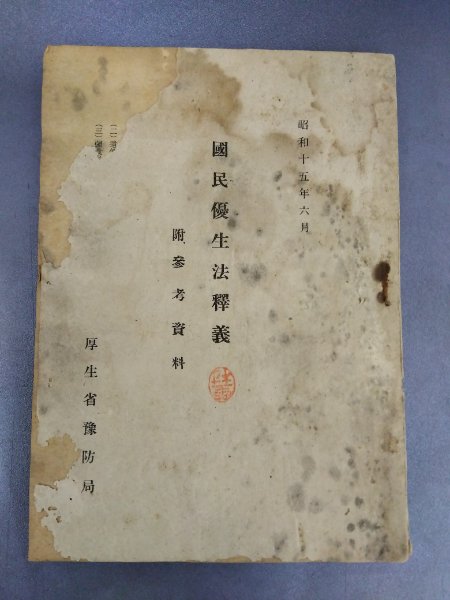 昭和十五年六月
國民優生法釋義
附、參考資料
厚生省豫防局